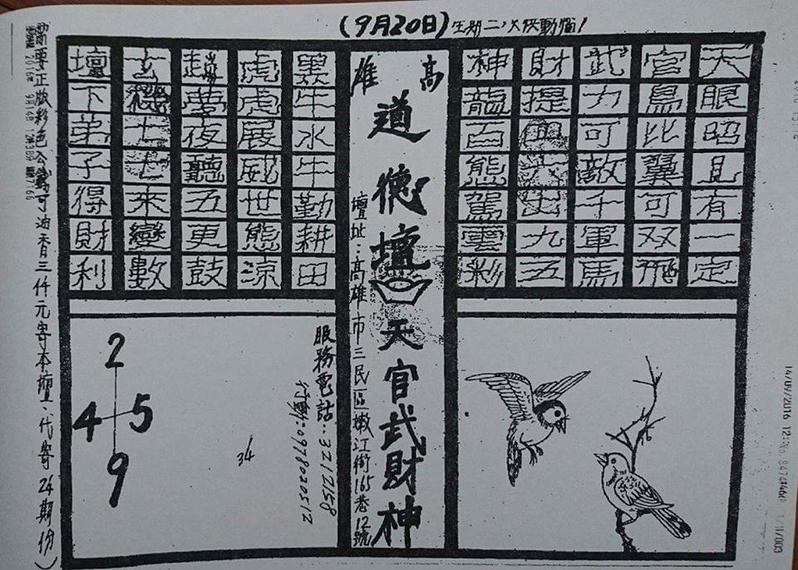 (9月20日)星期二
天眼昭且有一定
官鳥比翼可双飛
武力可敵千軍馬
財提出九五
神龍百熊駕雲彩
高雄
道德壇天官武財神
壇址:高雄市三民區嫩江街165巷12號
黑牛水牛勤耕田
虎虎展威世態涼
夢夜聽五更鼓
玄來變數
壇下弟子得財利
服務電話:3212158
行動:0978020512
34
2
4 5
9
需要正版彩色可油香三仟元寄本壇、代寄24期份)
14/09/2016